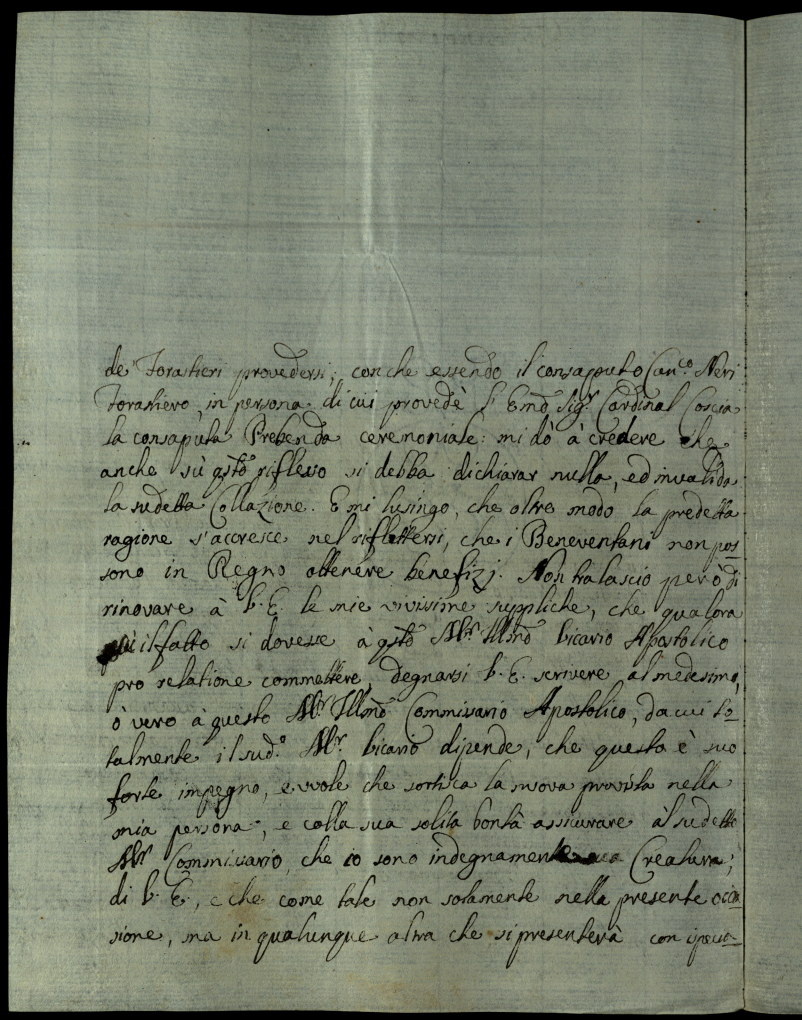 de' Forastieri provedersi; con che essendo il consaputo Can.co Neri
Forastiero, in persona di cui provedè l'Emo Sig.r Cardinal Coscia
la consaputa Prebenda ceremoniale: mi dò à credere che
anche sù qsto riflesso si debba dichiarar nulla, ed invalida
la sudetta Collazione. E mi lusingo, che oltre modo la predetta
ragione s'accresce nel riflettersi, che i Beneventani non pos=
sono in Regno ottenere benefizj. Non tralascio però di
rinovare à V. E. le mie vivissime suppliche, che qualora
sù il fatto si dovesse à qsto Mr. Illmo Vicario Apostolico
pro relatione commettere, degnarsi V. E. scrivere al medesimo,
ò vero à questo Mr. Illmo Commissario Apostolico, da cui to=
talmente il sud.o Mr. Vicario dipende, che questo è suo
forte impegno, e vuole che sortisca la nuova provista nella
mia persona; e colla sua solita bontà assicurare al sudetto
Mr. Commissario, che io sono indegnamente sua Creatura;
di V. E., e che come tale non solamente nella presente occa
sione, ma in qualunque altra che si presenterà con ispecia=